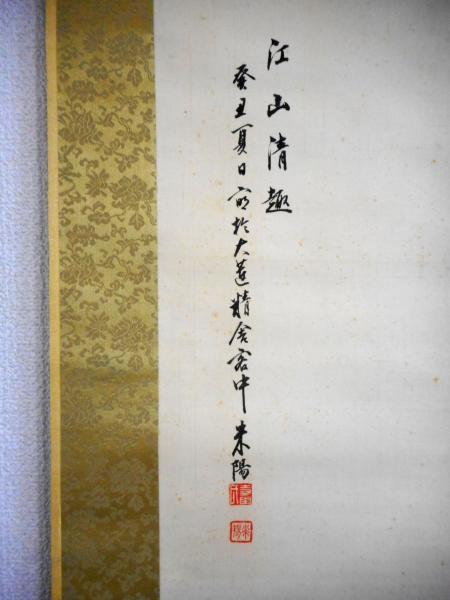 江山清趣
癸丑夏日寫於大蓮精舍客中 耒陽